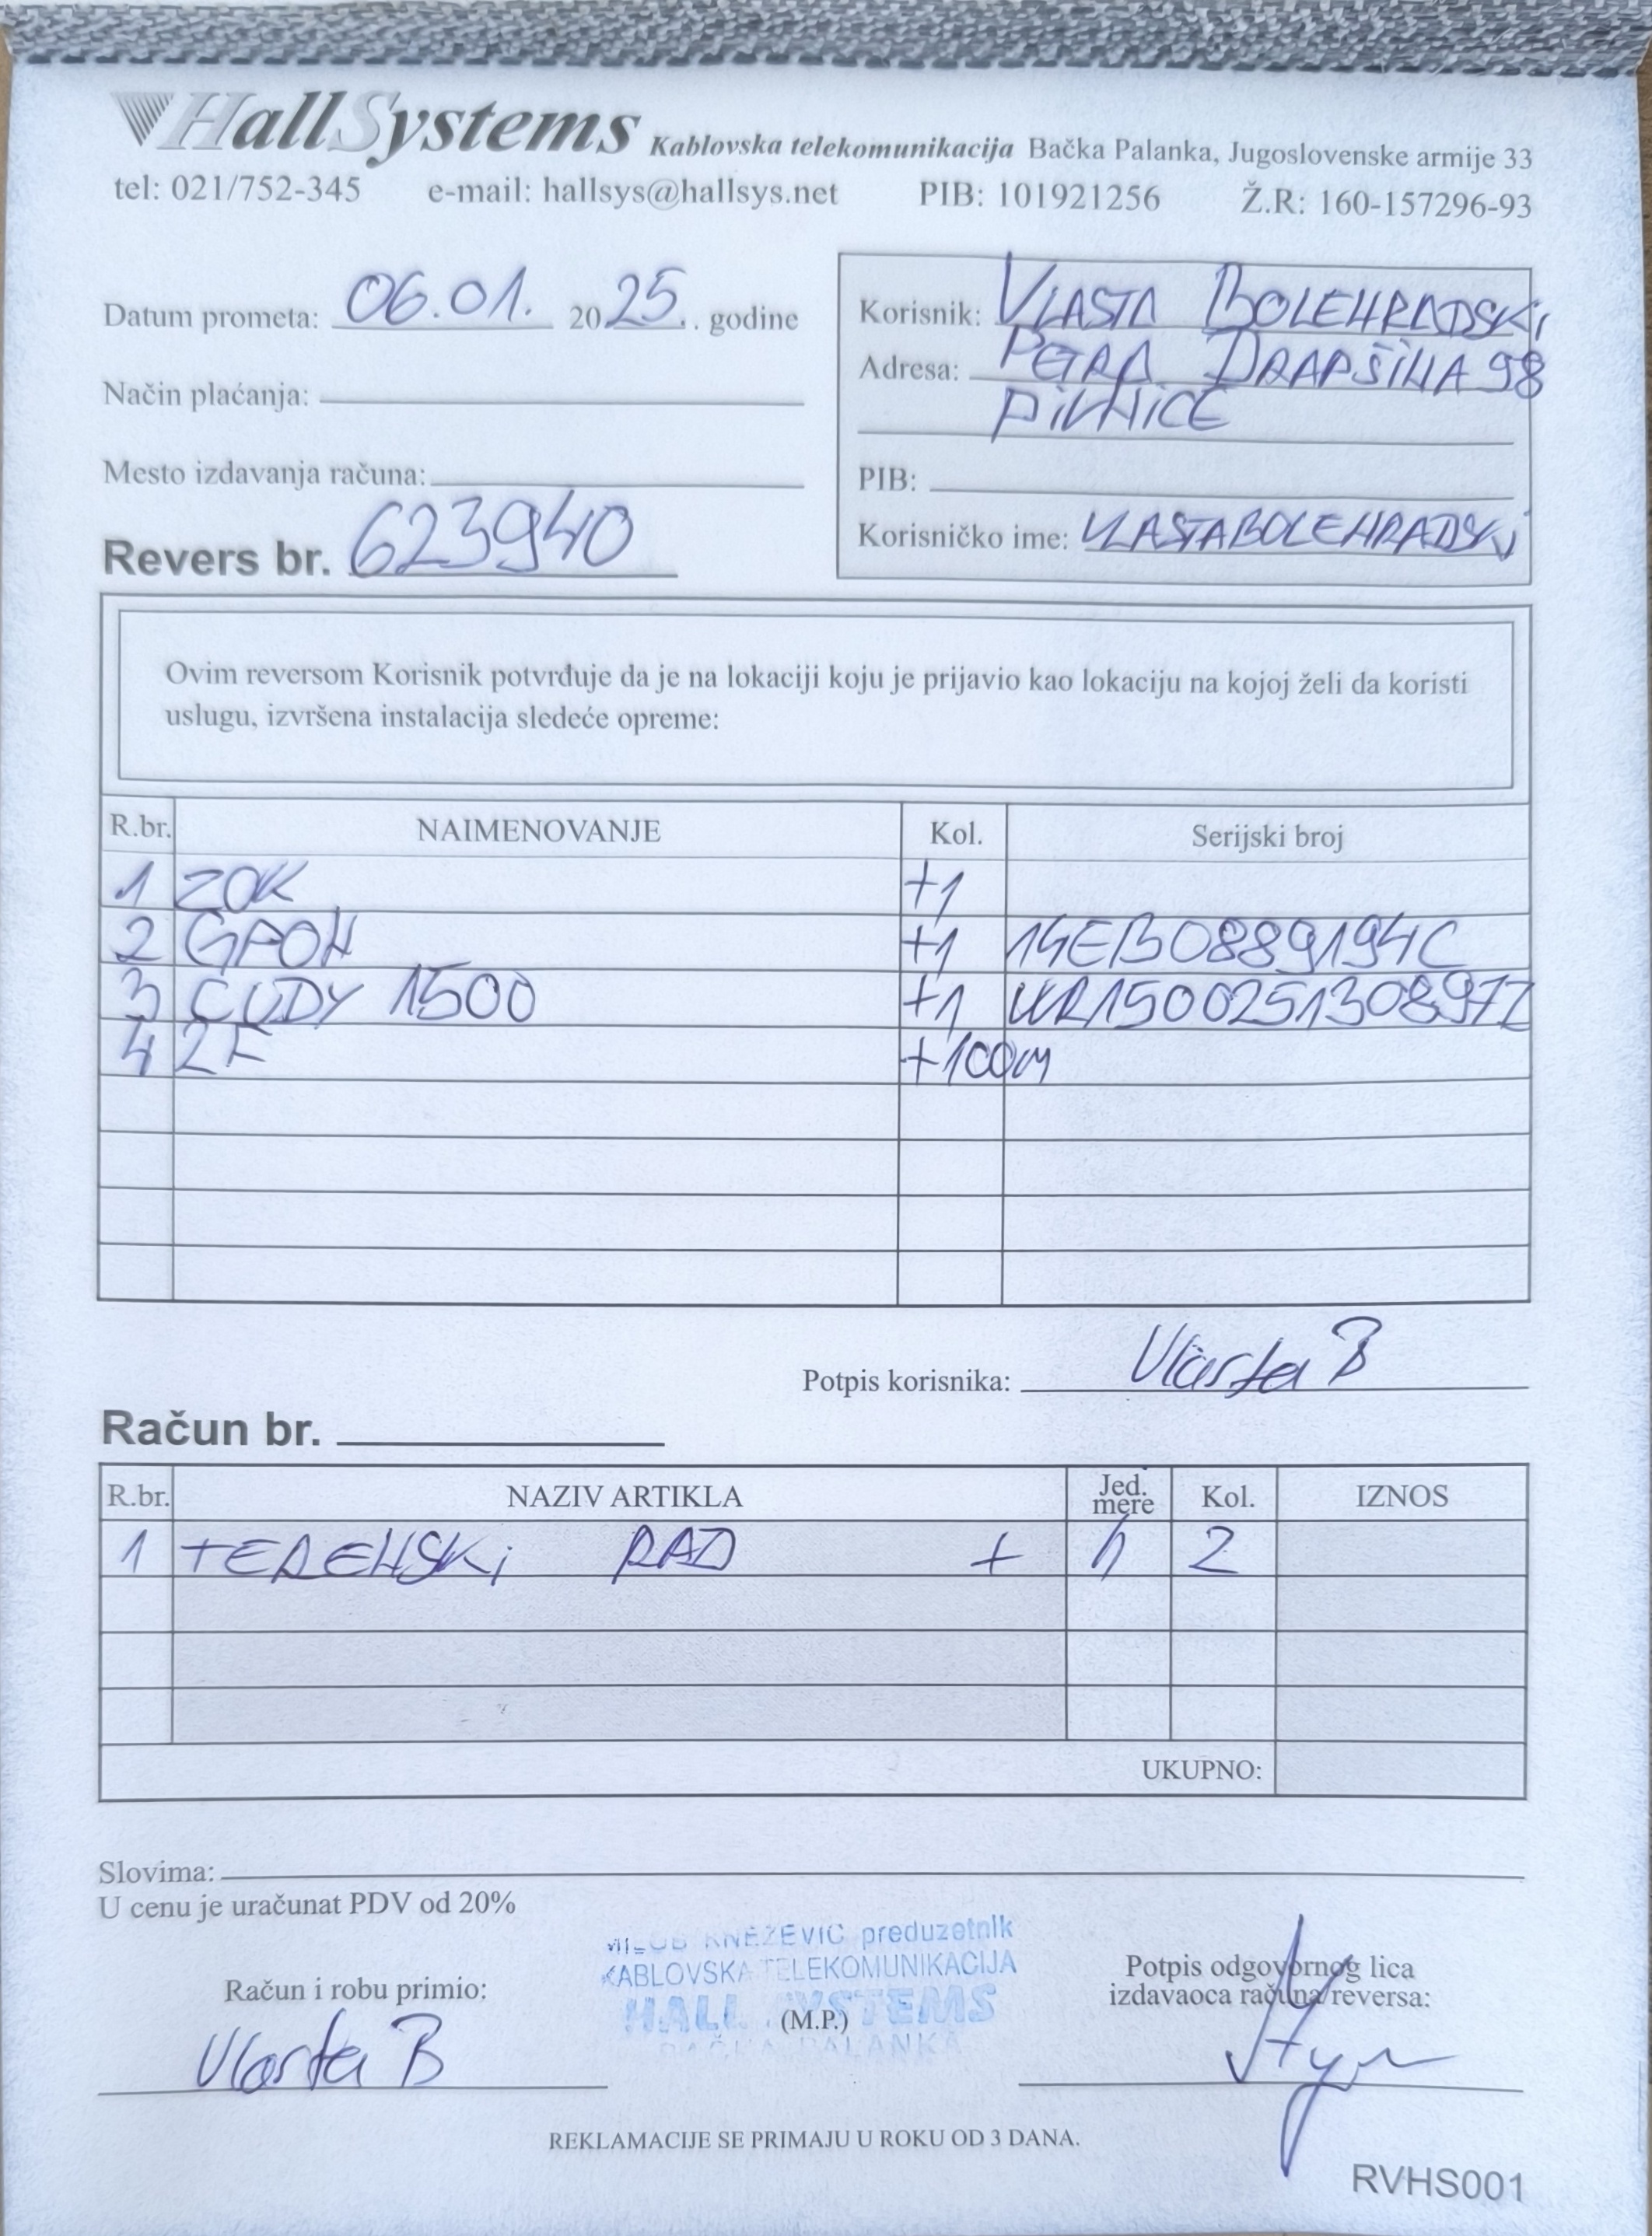 HallSystems Kablovska telekomunikacija Bačka Palanka, Jugoslovenske armije 33
tel: 021/752-345 e-mail: hallsys@hallsys.net PIB: 101921256 Ž.R: 160-157296-93
Datum prometa: 06.01. 2025. . godine
Korisnik: VLASTA BOLEHRADSKi
Adresa: PETRA DRAPŠiNA 98
PiVNiCE
Način plaćanja:
Mesto izdavanja računa:
PIB:
Korisničko ime: VLASTABOLEHRADSKi
Revers br. 623940
Ovim reversom Korisnik potvrđuje da je na lokaciji koju je prijavio kao lokaciju na kojoj želi da koristi
uslugu, izvršena instalacija sledeće opreme:
R.br. NAIMENOVANJE Kol. Serijski broj
1 ZOK +1
2 GPON +1 14EB0889194C
3 CUDY 1500 +1 WR1500251308977
4 2F +100m
Potpis korisnika: Vlasta B
Račun br.
R.br. NAZIV ARTIKLA Jed. mere Kol. IZNOS
1 TERENSKi RAD + h 2
UKUPNO:
Slovima:
U cenu je uračunat PDV od 20%
MILOŠ KNEŽEVIĆ preduzetnik
KABLOVSKA TELEKOMUNIKACIJA
HALL SYSTEMS
BAČKA PALANKA
Račun i robu primio:
(M.P.)
Potpis odgovornog lica
izdavaoca računa/reversa:
Vlasta B
REKLAMACIJE SE PRIMAJU U ROKU OD 3 DANA.
RVHS001